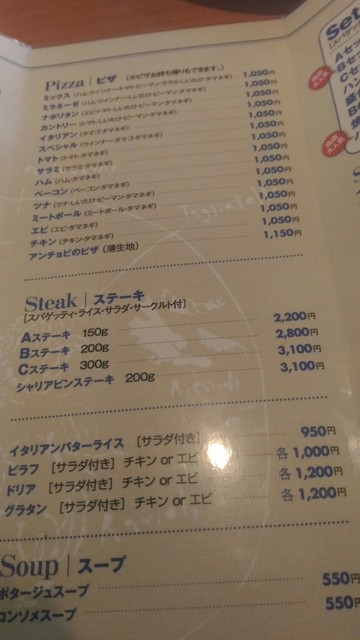 Pizza | ピザ (※ピザお持ち帰りもできます。)
ミックス (ハム・ウインナー・トマト・ピーマン・サラミ・しいたけ・タマネギ) 1,050円
ミラネーゼ (ハム・ウインナー・しいたけ・ピーマン・タマネギ) 1,050円
ナポリタン (エビ・トマト・しいたけ・ピーマン・タマネギ) 1,050円
カントリー (トマト・しいたけ・ピーマン・タマネギ) 1,050円
イタリアン (タマゴ・タマネギ) 1,050円
スペシャル (ウインナー・タマゴ・タマネギ) 1,050円
トマト (トマト・タマネギ) 1,050円
サラミ (サラミ・タマネギ) 1,050円
ハム (ハム・タマネギ) 1,050円
ベーコン (ベーコン・タマネギ) 1,050円
ツナ (ツナ・しいたけ・ピーマン・タマネギ) 1,050円
ミートボール (ミートボール・タマネギ) 1,050円
エビ (エビ・タマネギ) 1,050円
チキン (チキン・タマネギ) 1,050円
アンチョビのピザ (薄生地) 1,150円
Steak | ステーキ
[スパゲッティ・ライス・サラダ・サークルト付]
Aステーキ 150g 2,200円
Bステーキ 200g 2,800円
Cステーキ 300g 3,100円
シャリアピンステーキ 200g 3,100円
イタリアンバターライス [サラダ付き] 950円
ピラフ [サラダ付き] チキン or エビ 各1,000円
ドリア [サラダ付き] チキン or エビ 各1,200円
グラタン [サラダ付き] チキン or エビ 各1,200円
Soup | スープ
ポタージュスープ 550円
コンソメスープ 550円
Set